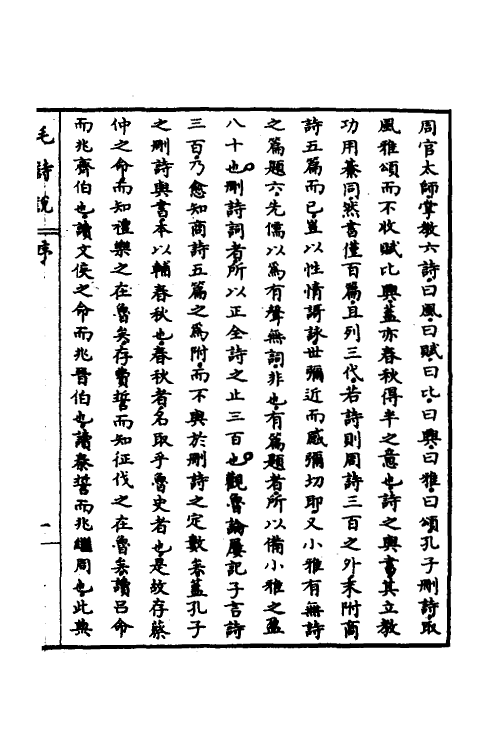 周官太師掌教六詩曰風曰賦曰比曰興曰雅曰頌孔子刪詩取
風雅頌而不收賦比興蓋亦春秋得半之意也詩之與書其立教
功用纂同然書僅百篇且列三代若詩則周詩三百之外末附商
詩五篇而已豈以性情謌詠世彌近而感彌切耶又小雅有無詩
之篇題六先儒以為有聲無詞非也有篇題者所以備小雅之盈
八十也刪詩詞者所以正全詩之止三百也觀魯論屢記子言詩
三百乃愈知商詩五篇之為附而不與於刪詩之定數者蓋孔子
之刪詩與書本以輔春秋也春秋者名取乎魯史者也是故存蔡
仲之命而知禮樂之在魯矣存費誓而知征伐之在魯矣讀呂命
而兆齊伯也讀文侯之命而兆晋伯也讀秦誓而兆繼周也此與
毛詩說 序 一